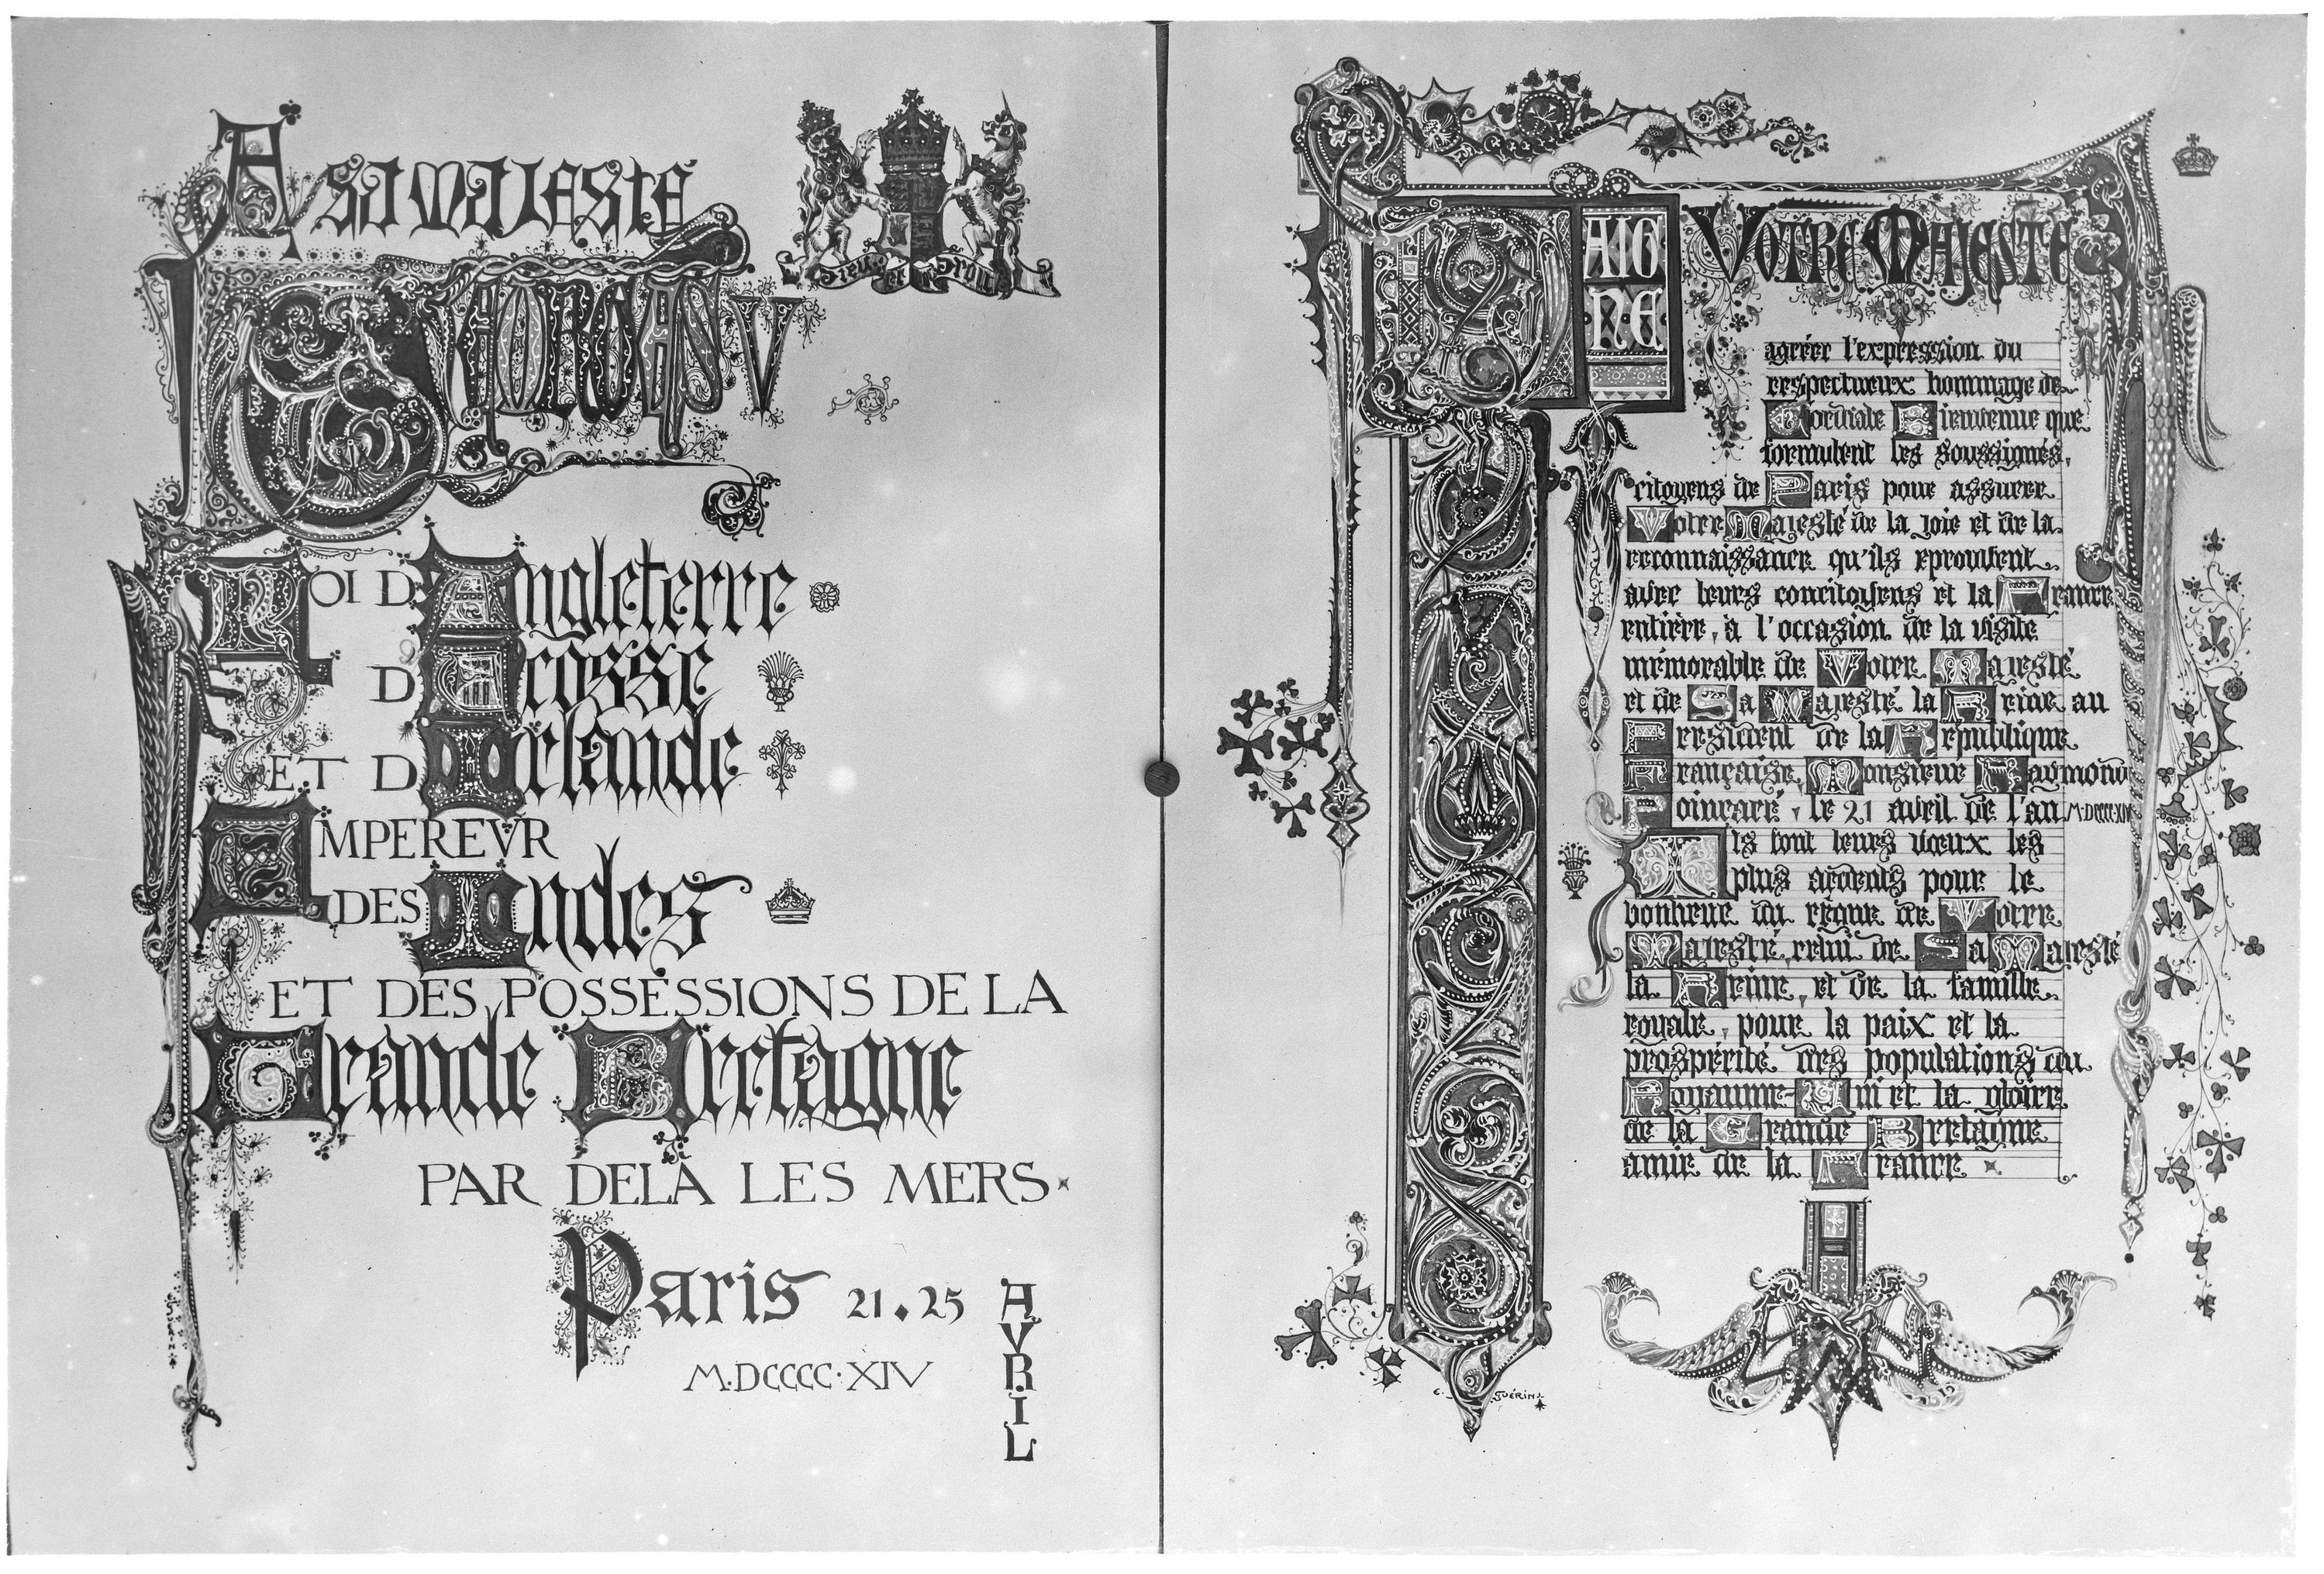 A SA MAJESTÉ
GEORGES V
Dieu et Droit
ROI D'Angleterre
D'Ecosse
ET D'Irlande
EMPEREVR
DES Indes
ET DES POSSESSIONS DE LA
Grande Bretagne
PAR DELÀ LES MERS
Paris 21.25 AVRIL
M.DCCCC.XIV
DAIGNE VOTRE MAJESTE
agréer l'expression du
respectueux hommage de
Cordiale Bienvenue que
formulent les soussignés,
citoyens de Paris pour assurer
Votre Majesté de la joie et de la
reconnaissance qu'ils eprouvent
avec leurs concitoyens et la France
entière, à l'occasion de la visite
mémorable de Votre Majesté
et de Sa Majesté la Reine au
President de la République
Française, Monsieur Raymond
Poincaré, le 21 avril de l'an M.DCCCC.XIV
Ils font leurs vœux les
plus ardents pour le
bonheur du règne de Votre
Majesté, celui de Sa Majesté
la Reine, et de la famille
royale, pour la paix et la
prospérité des populations du
Royaume-Uni et la gloire
de la Grande Bretagne
amie de la France
E. GUÉRIN